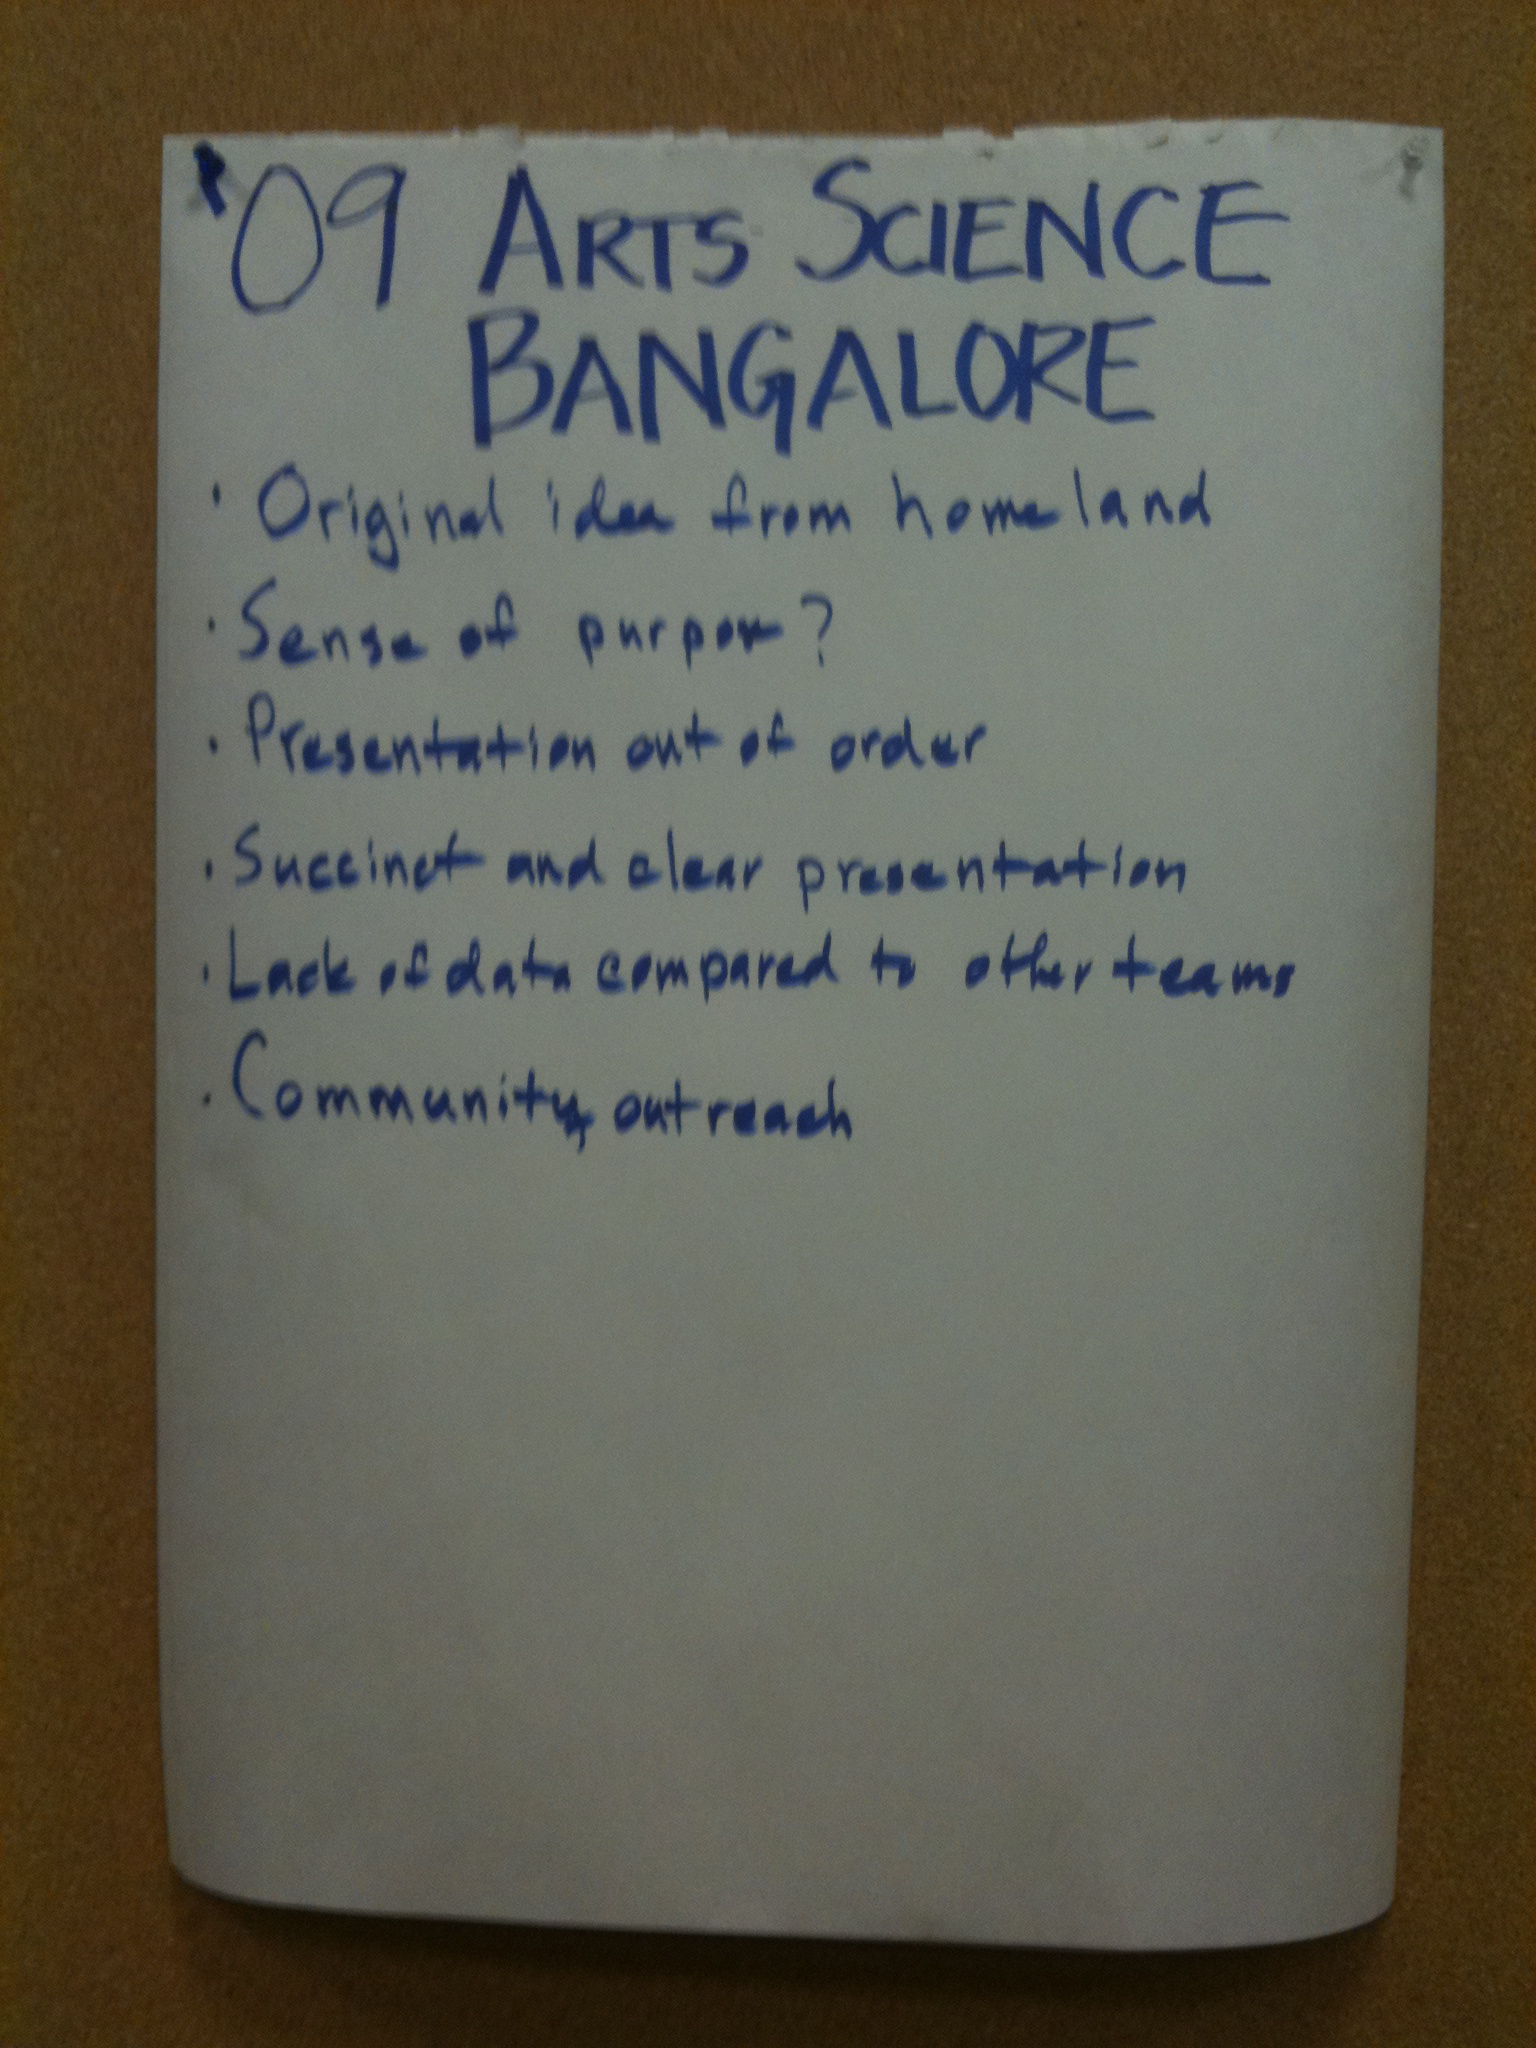 '09 ARTS SCIENCE
BANGALORE
· Original idea from homeland
· Sense of purpose?
· Presentation out of order
· Succinct and clear presentation
· Lack of data compared to other teams
· Community outreach